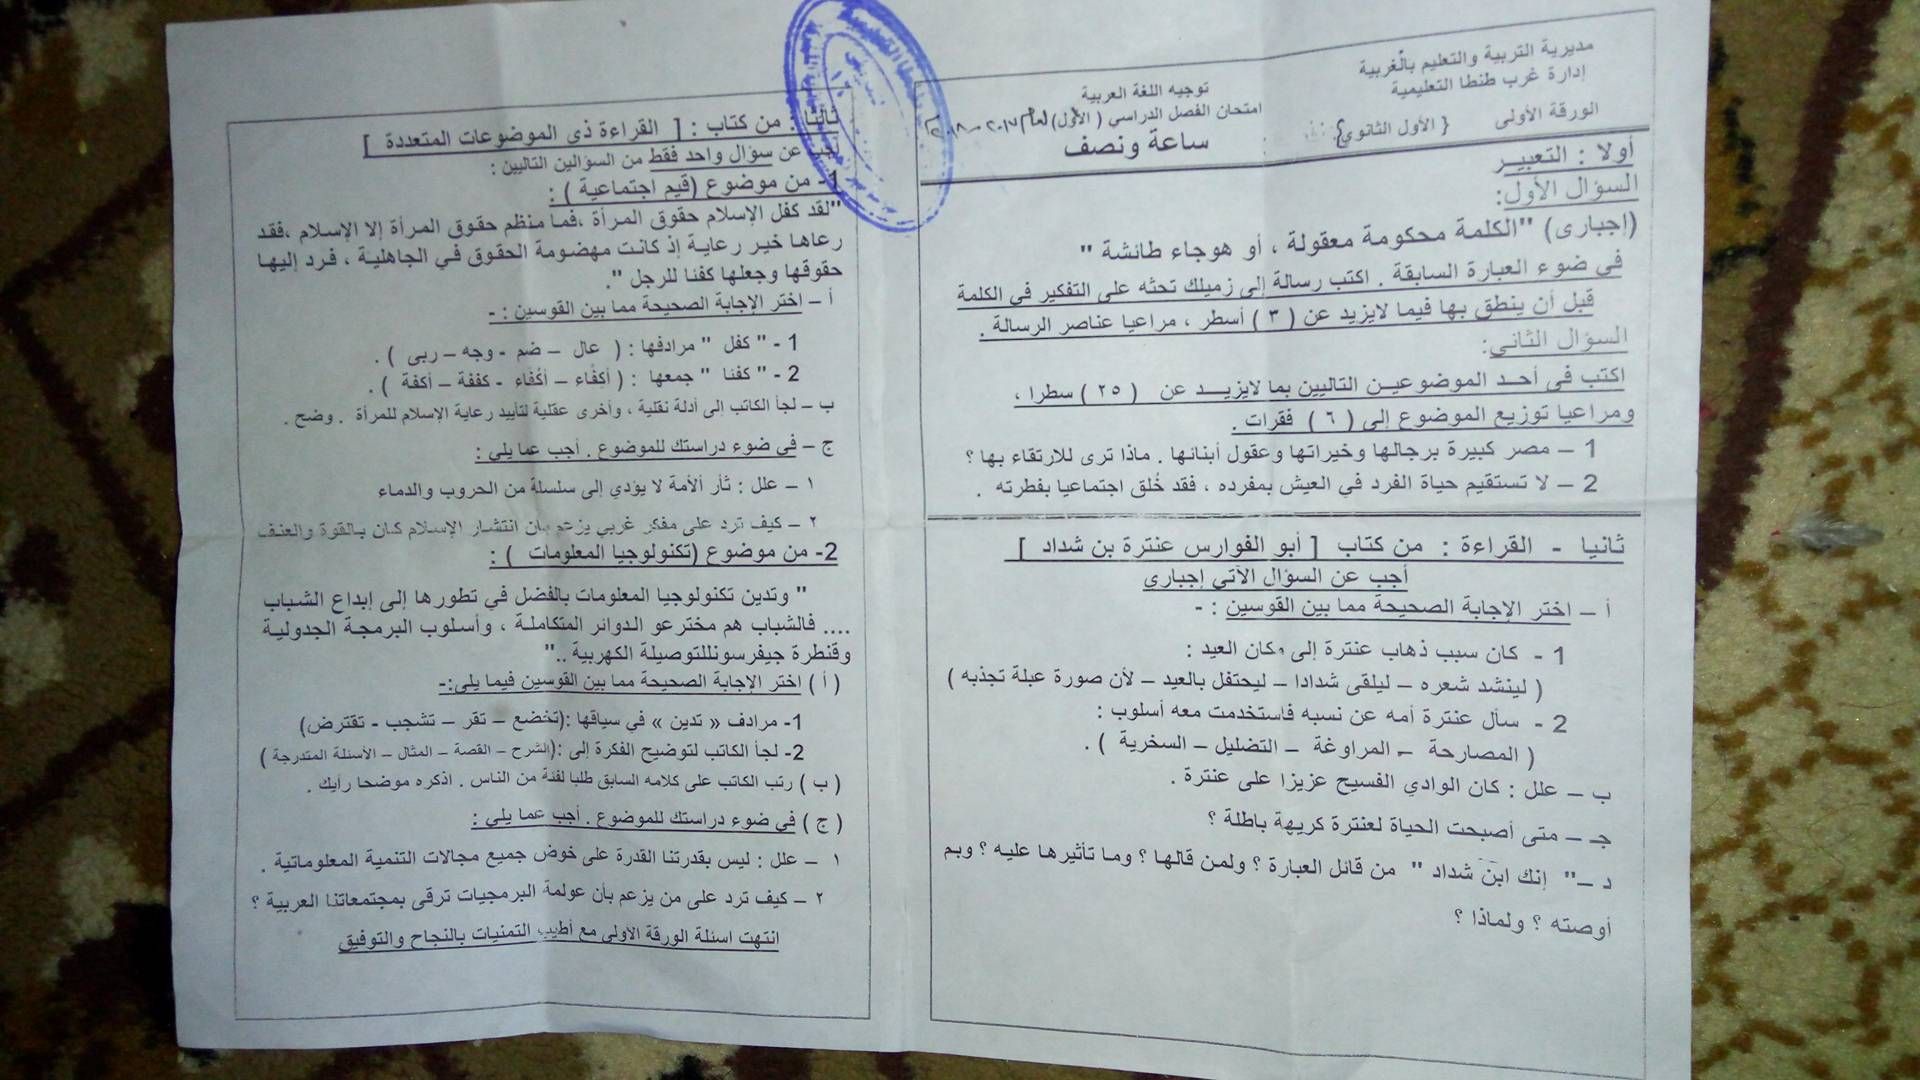 مديرية التربية والتعليم بالغربية
إدارة غرب طنطا التعليمية
الورقة الأولى { الأول الثانوي }
توجيه اللغة العربية
امتحان الفصل الدراسي ( الأول ) لعام ٢٠١٧ – ٢٠١٨
ساعة ونصف
أولا : التعبير
السؤال الأول:
(إجبارى) "الكلمة محكومة معقولة ، أو هوجاء طائشة "
في ضوء العبارة السابقة . اكتب رسالة إلى زميلك تحثه على التفكير في الكلمة
قبل أن ينطق بها فيما لايزيد عن ( ٣ ) أسطر ، مراعيا عناصر الرسالة .
السؤال الثانى:
اكتب فى أحد الموضوعين التاليين بما لايزيد عن ( ٢٥ ) سطرا ،
ومراعيا توزيع الموضوع إلى ( ٦ ) فقرات .
1 – مصر كبيرة برجالها وخيراتها وعقول أبنائها . ماذا ترى للارتقاء بها ؟
2 – لا تستقيم حياة الفرد في العيش بمفرده ، فقد خُلق اجتماعيا بفطرته .
ثانيا - القراءة : من كتاب [ أبو الفوارس عنترة بن شداد ]
أجب عن السؤال الآتي إجباري
أ – اختر الإجابة الصحيحة مما بين القوسين : -
1 - كان سبب ذهاب عنترة إلى مكان العيد :
( لينشد شعره – ليلقى شدادا – ليحتفل بالعيد – لأن صورة عبلة تجذبه )
2 - سأل عنترة أمه عن نسبه فاستخدمت معه أسلوب :
( المصارحة – المراوغة – التضليل – السخرية ) .
ب – علل : كان الوادي الفسيح عزيزا على عنترة .
جـ – متى أصبحت الحياة لعنترة كريهة باطلة ؟
د –" إنك ابن شداد " من قائل العبارة ؟ ولمن قالها ؟ وما تأثيرها عليه ؟ وبم
أوصته ؟ ولماذا ؟
ثالثا : من كتاب : [ القراءة ذى الموضوعات المتعددة ]
أجب عن سؤال واحد فقط من السؤالين التاليين :
1- من موضوع (قيم اجتماعية ) :
"لقد كفل الإسلام حقوق المرأة ،فما منظم حقوق المرأة إلا الإسلام ،فقد
رعاها خير رعاية إذ كانت مهضومة الحقوق في الجاهلية ، فرد إليها
حقوقها وجعلها كفئا للرجل ".
أ – اختر الإجابة الصحيحة مما بين القوسين : -
1 - " كفل " مرادفها : ( عال – ضم - وجه – ربى ) .
2 - " كفئا " جمعها : ( أكفَّاء – أكْفاء - كففة – أكفة ) .
ب – لجأ الكاتب إلى أدلة نقلية ، وأخرى عقلية لتأييد رعاية الإسلام للمرأة . وضح .
ج – في ضوء دراستك للموضوع . أجب عما يلي :
١ – علل : ثأر الأمة لا يؤدي إلى سلسلة من الحروب والدماء
٢ – كيف ترد على مفكر غربي يزعم بأن انتشار الإسلام كان بالقوة والعنف
2- من موضوع (تكنولوجيا المعلومات ) :
" وتدين تكنولوجيا المعلومات بالفضل في تطورها إلى إبداع الشباب
.... فالشباب هم مخترعو الدوائر المتكاملة ، وأسلوب البرمجة الجدولية
وقنطرة جيفرسونللتوصيلة الكهربية .."
( أ ) اختر الاجابة الصحيحة مما بين القوسين فيما يلي:-
1- مرادف « تدين » في سياقها :(تخضع – تقر – تشجب - تقترض)
2- لجأ الكاتب لتوضيح الفكرة إلى :(الشرح – القصة – المثال – الأسئلة المتدرجة )
( ب ) رتب الكاتب على كلامه السابق طلبا لفئة من الناس . اذكره موضحا رأيك .
( ج ) في ضوء دراستك للموضوع . أجب عما يلي :
١ – علل : ليس بقدرتنا القدرة على خوض جميع مجالات التنمية المعلوماتية .
٢ – كيف ترد على من يزعم بأن عولمة البرمجيات ترقى بمجتمعاتنا العربية ؟
انتهت اسئلة الورقة الاولى مع أطيب التمنيات بالنجاح والتوفيق